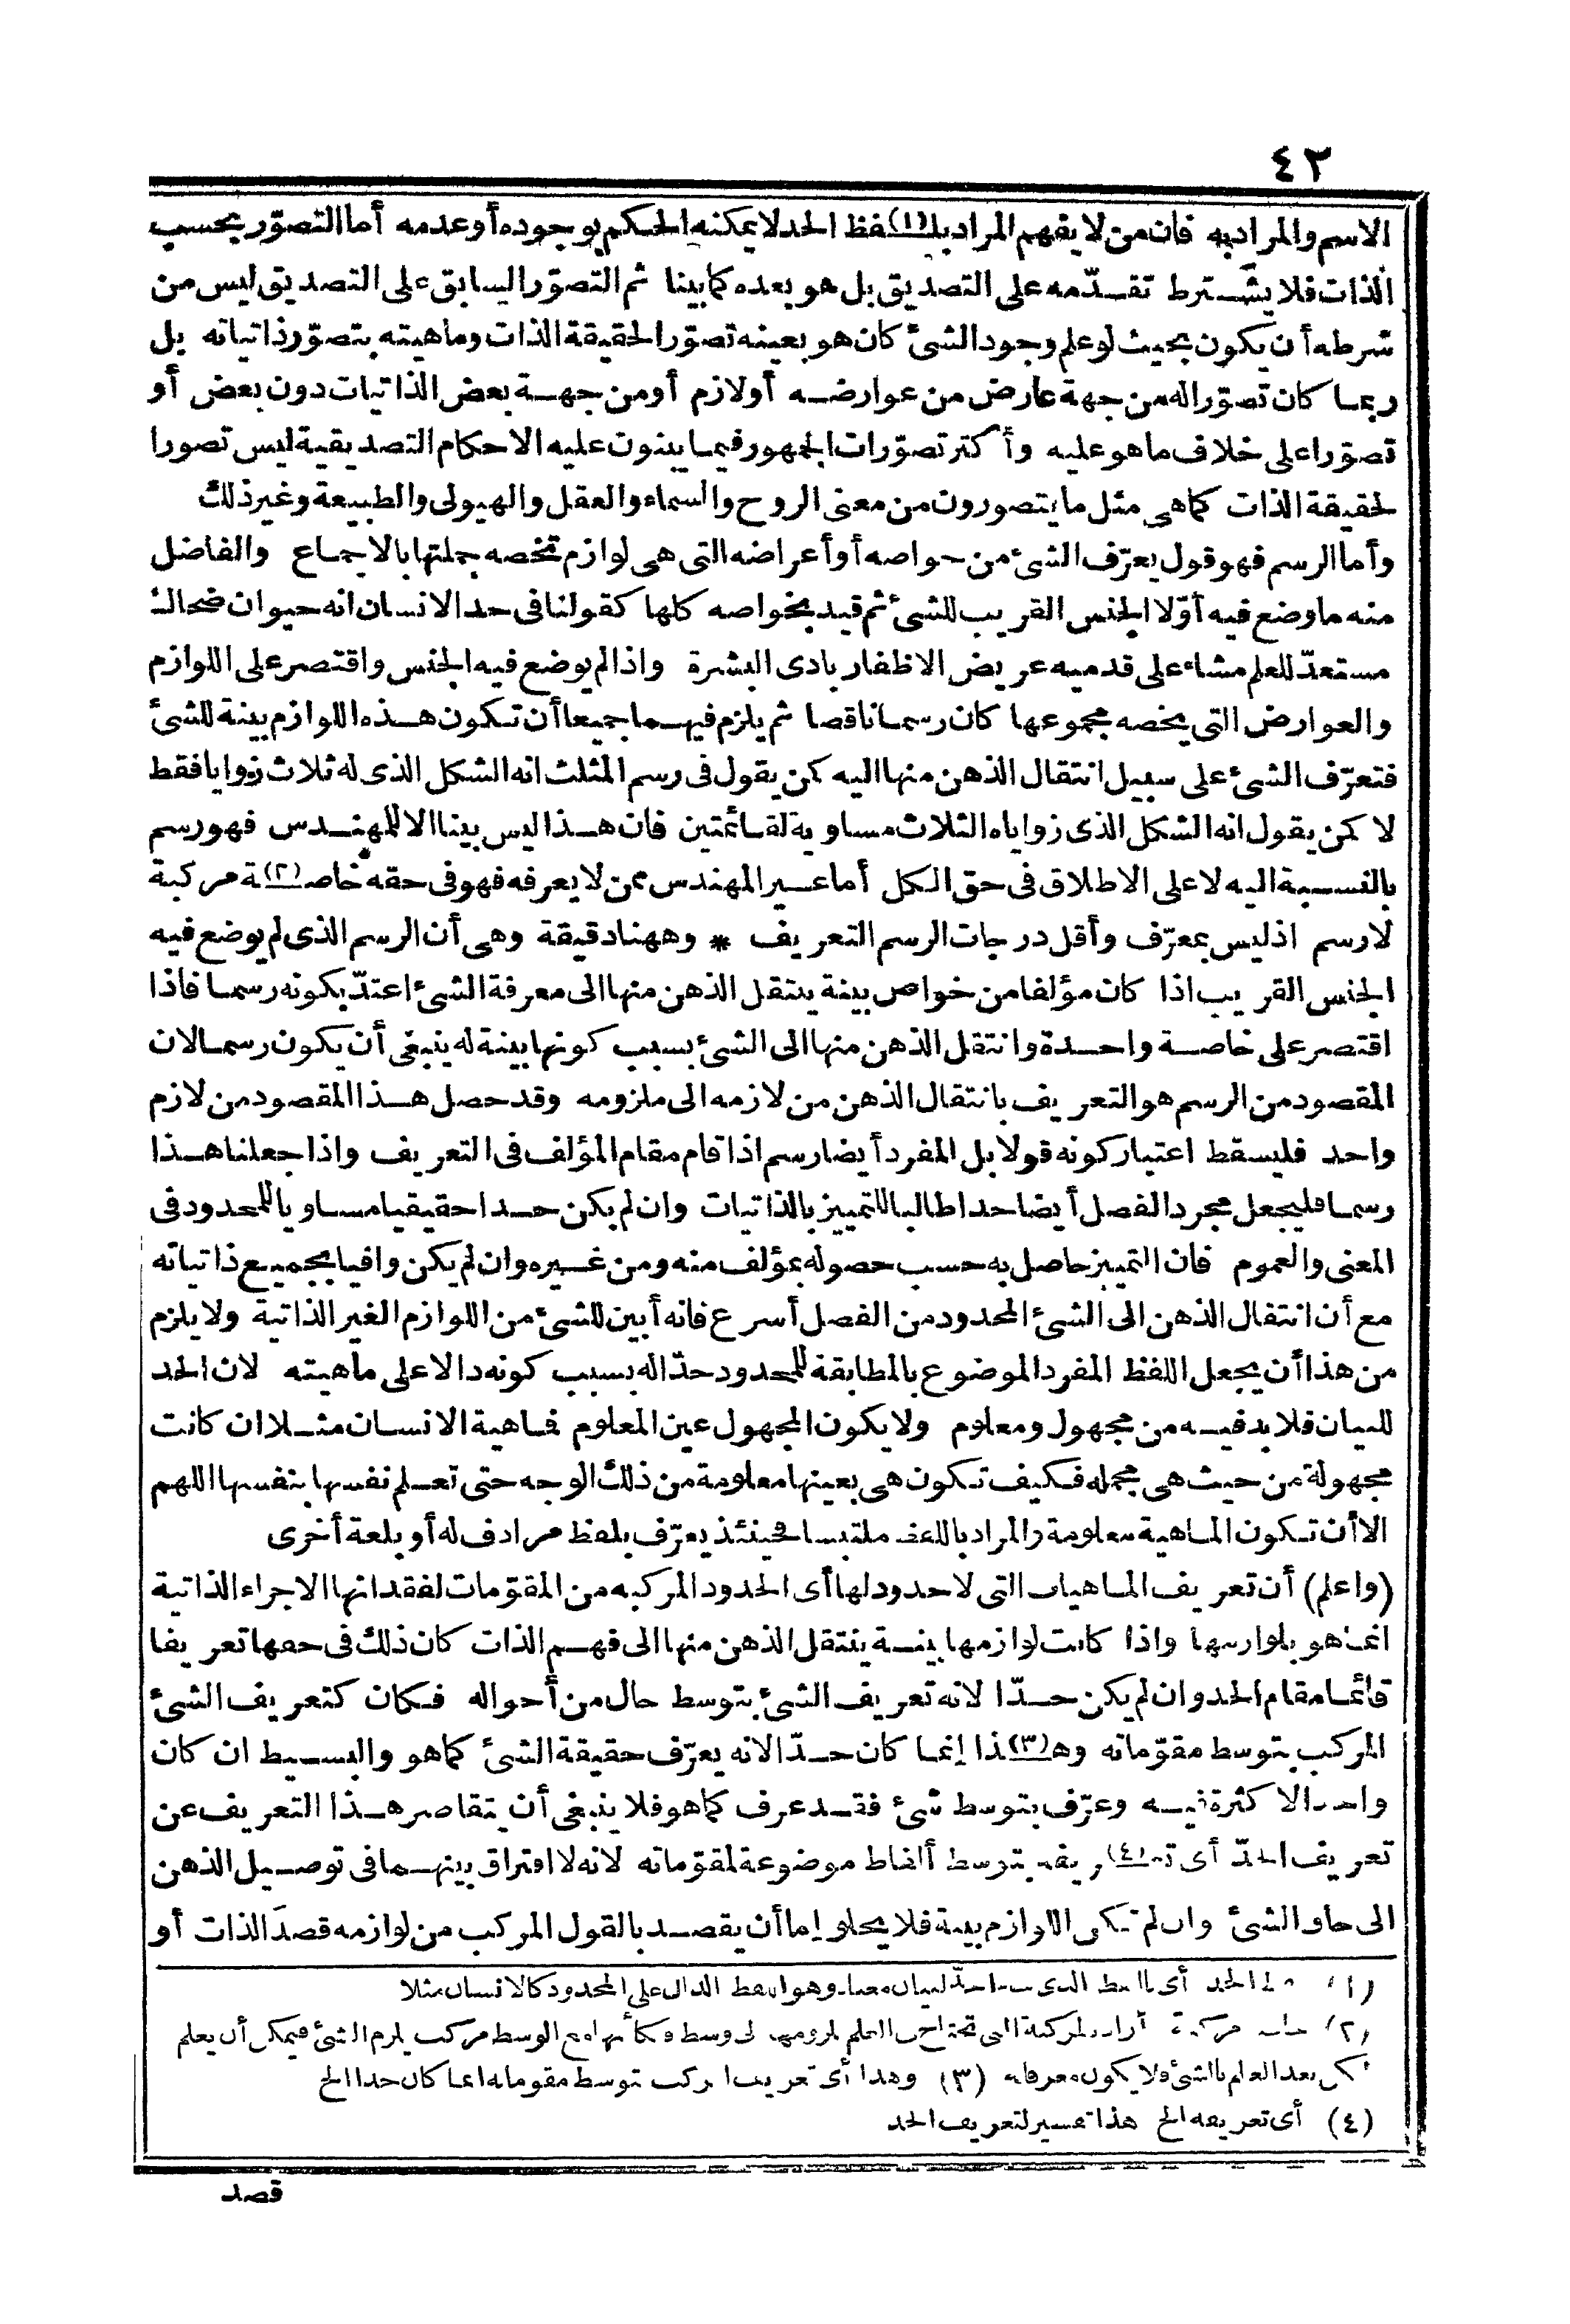 ٤٢
الاسم والمراد به فان من لا يفهم المراد بل(١)فظ الحد لا يمكنه الحكم بوجوده أو عدمه أما التصوّر بحسب
الذات فلا يشترط تقدّمه على التصديق بل هو بعده كما بينا ثم التصوّر السابق على التصديق ليس من
شرطه أن يكون بحيث لو علم وجود الشئ كان هو بعينه تصوّرا لحقيقة الذات وماهيته بتصوّر ذاتياته بل
ربما كان تصوّرا له من جهة عارض من عوارضه أو لازم أو من جهة بعض الذاتيات دون بعض أو
تصوّرا على خلاف ما هو عليه وأكثر تصوّرات الجمهور فيما يبنون عليه الاحكام التصديقية ليس تصورا
لحقيقة الذات كما هى مثل ما يتصورون من معنى الروح والسماء والعقل والهيولى والطبيعة وغير ذلك
وأما الرسم فهو قول يعرّف الشئ من خواصه أو أعراضه التى هى لوازم تخصه جملتها بالاجماع والفاضل
منه ما وضع فيه أوّلا الجنس القريب للشئ ثم قيد بخواصه كلها كقولنا فى حد الانسان انه حيوان ضحاك
مستعدّ للعلم مشاء على قدميه عريض الاظفار بادى البشرة واذا لم يوضع فيه الجنس واقتصر على اللوازم
والعوارض التى يخصه مجموعها كان رسما ناقصا ثم يلزم فيهما جميعا أن تكون هذه اللوازم بينة للشئ
فتعرّف الشئ على سبيل انتقال الذهن منها اليه كمن يقول فى رسم المثلث انه الشكل الذى له ثلاث زوايا فقط
لا كمن يقول انه الشكل الذى زواياه الثلاث مساوية لقائمتين فان هذا ليس بينا الا للمهندس فهو رسم
بالنسبة اليه لا على الاطلاق فى حق الكل أما غير المهندس ممن لا يعرفه فهو فى حقه خاص(٢)ة مركبة
لا رسم اذ ليس بمعرّف وأقل درجات الرسم التعريف * وههنا دقيقة وهى أن الرسم الذى لم يوضع فيه
الجنس القريب اذا كان مؤلفا من خواص بينة ينتقل الذهن منها الى معرفة الشئ اعتدّ بكونه رسما فاذا
اقتصر على خاصة واحدة وانتقل الذهن منها الى الشئ بسبب كونها بينة له ينبغى أن يكون رسما لان
المقصود من الرسم هو التعريف بانتقال الذهن من لازمه الى ملزومه وقد حصل هذا المقصود من لازم
واحد فليسقط اعتبار كونه قولا بل المفرد أيضا رسم اذا قام مقام المؤلف فى التعريف واذا جعلنا هذا
رسما فليجعل مجرد الفصل أيضا حدا طالبا للتمييز بالذاتيات وان لم يكن حدا حقيقيا مساويا للمحدود فى
المعنى والعموم فان التمييز حاصل به حسب حصوله بمؤلف منه ومن غيره وان لم يكن وافيا بجميع ذاتياته
مع أن انتقال الذهن الى الشئ المحدود من الفصل أسرع فانه أبين للشئ من اللوازم الغير الذاتية ولا يلزم
من هذا أن يجعل اللفظ المفرد الموضوع بالمطابقة للمحدود حدّا له بسبب كونه دالا على ماهيته لان الحد
للبيان فلا بد فيه من مجهول ومعلوم ولا يكون المجهول عين المعلوم فماهية الانسان مثلا ان كانت
مجهولة من حيث هى مجمله فكيف تكون هى بعينها معلومة من ذلك الوجه حتى تعلم نفسها بنفسها اللهم
الا أن تكون الماهية معلومة والمراد باللفظ ملتبسا فحينئذ يعرّف بلفظ مرادف له أو بلغة أخرى
(واعلم) أن تعريف الماهيات التى لا حدود لها أى الحدود المركبه من المقوّمات لفقدانها الاجزاء الذاتية
انما هو بلوازمها واذا كانت لوازمها بينة ينتقل الذهن منها الى فهم الذات كان ذلك فى حقها تعريفا
قائما مقام الحد وان لم يكن حدّا لانه تعريف الشئ بتوسط حال من أحواله فكان كتعريف الشئ
المركب بتوسط مقوّماته وه(٣)ذا إنما كان حدّا لانه يعرّف حقيقة الشئ كما هو والبسيط ان كان
واحدا لا كثرة فيه وعرّف بتوسط شئ فقد عرف كما هو فلا ينبغى أن يتقاصر هذا التعريف عن
تعريف الحدّ أى تع(٤)ريفه بتوسط ألفاظ موضوعة لمقوّماته لانه لا افتراق بينهما فى توصيل الذهن
الى حاق الشئ وان لم تكن اللوازم بينة فلا يخلو إما أن يقصد بالقول المركب من لوازمه قصد الذات أو
(١) الحد أى باللفظ الذى لبيان معناه وهو اللفظ الدال على المحدود كالانسان مثلا
(٢) خاصة مركبة أراد بالمركبة التى تحتاج فى العلم بلزومها الى وسط فكأنها مع الوسط مركب يلزم الشئ فيمكن أن يعلم
لكن بعد العلم بالشئ فلا يكون معرفا له (٣) وهذا أى تعريف المركب بتوسط مقوماته انما كان حدا الخ
(٤) أى تعريفه الخ هذا تفسير لتعريف الحد
قصد